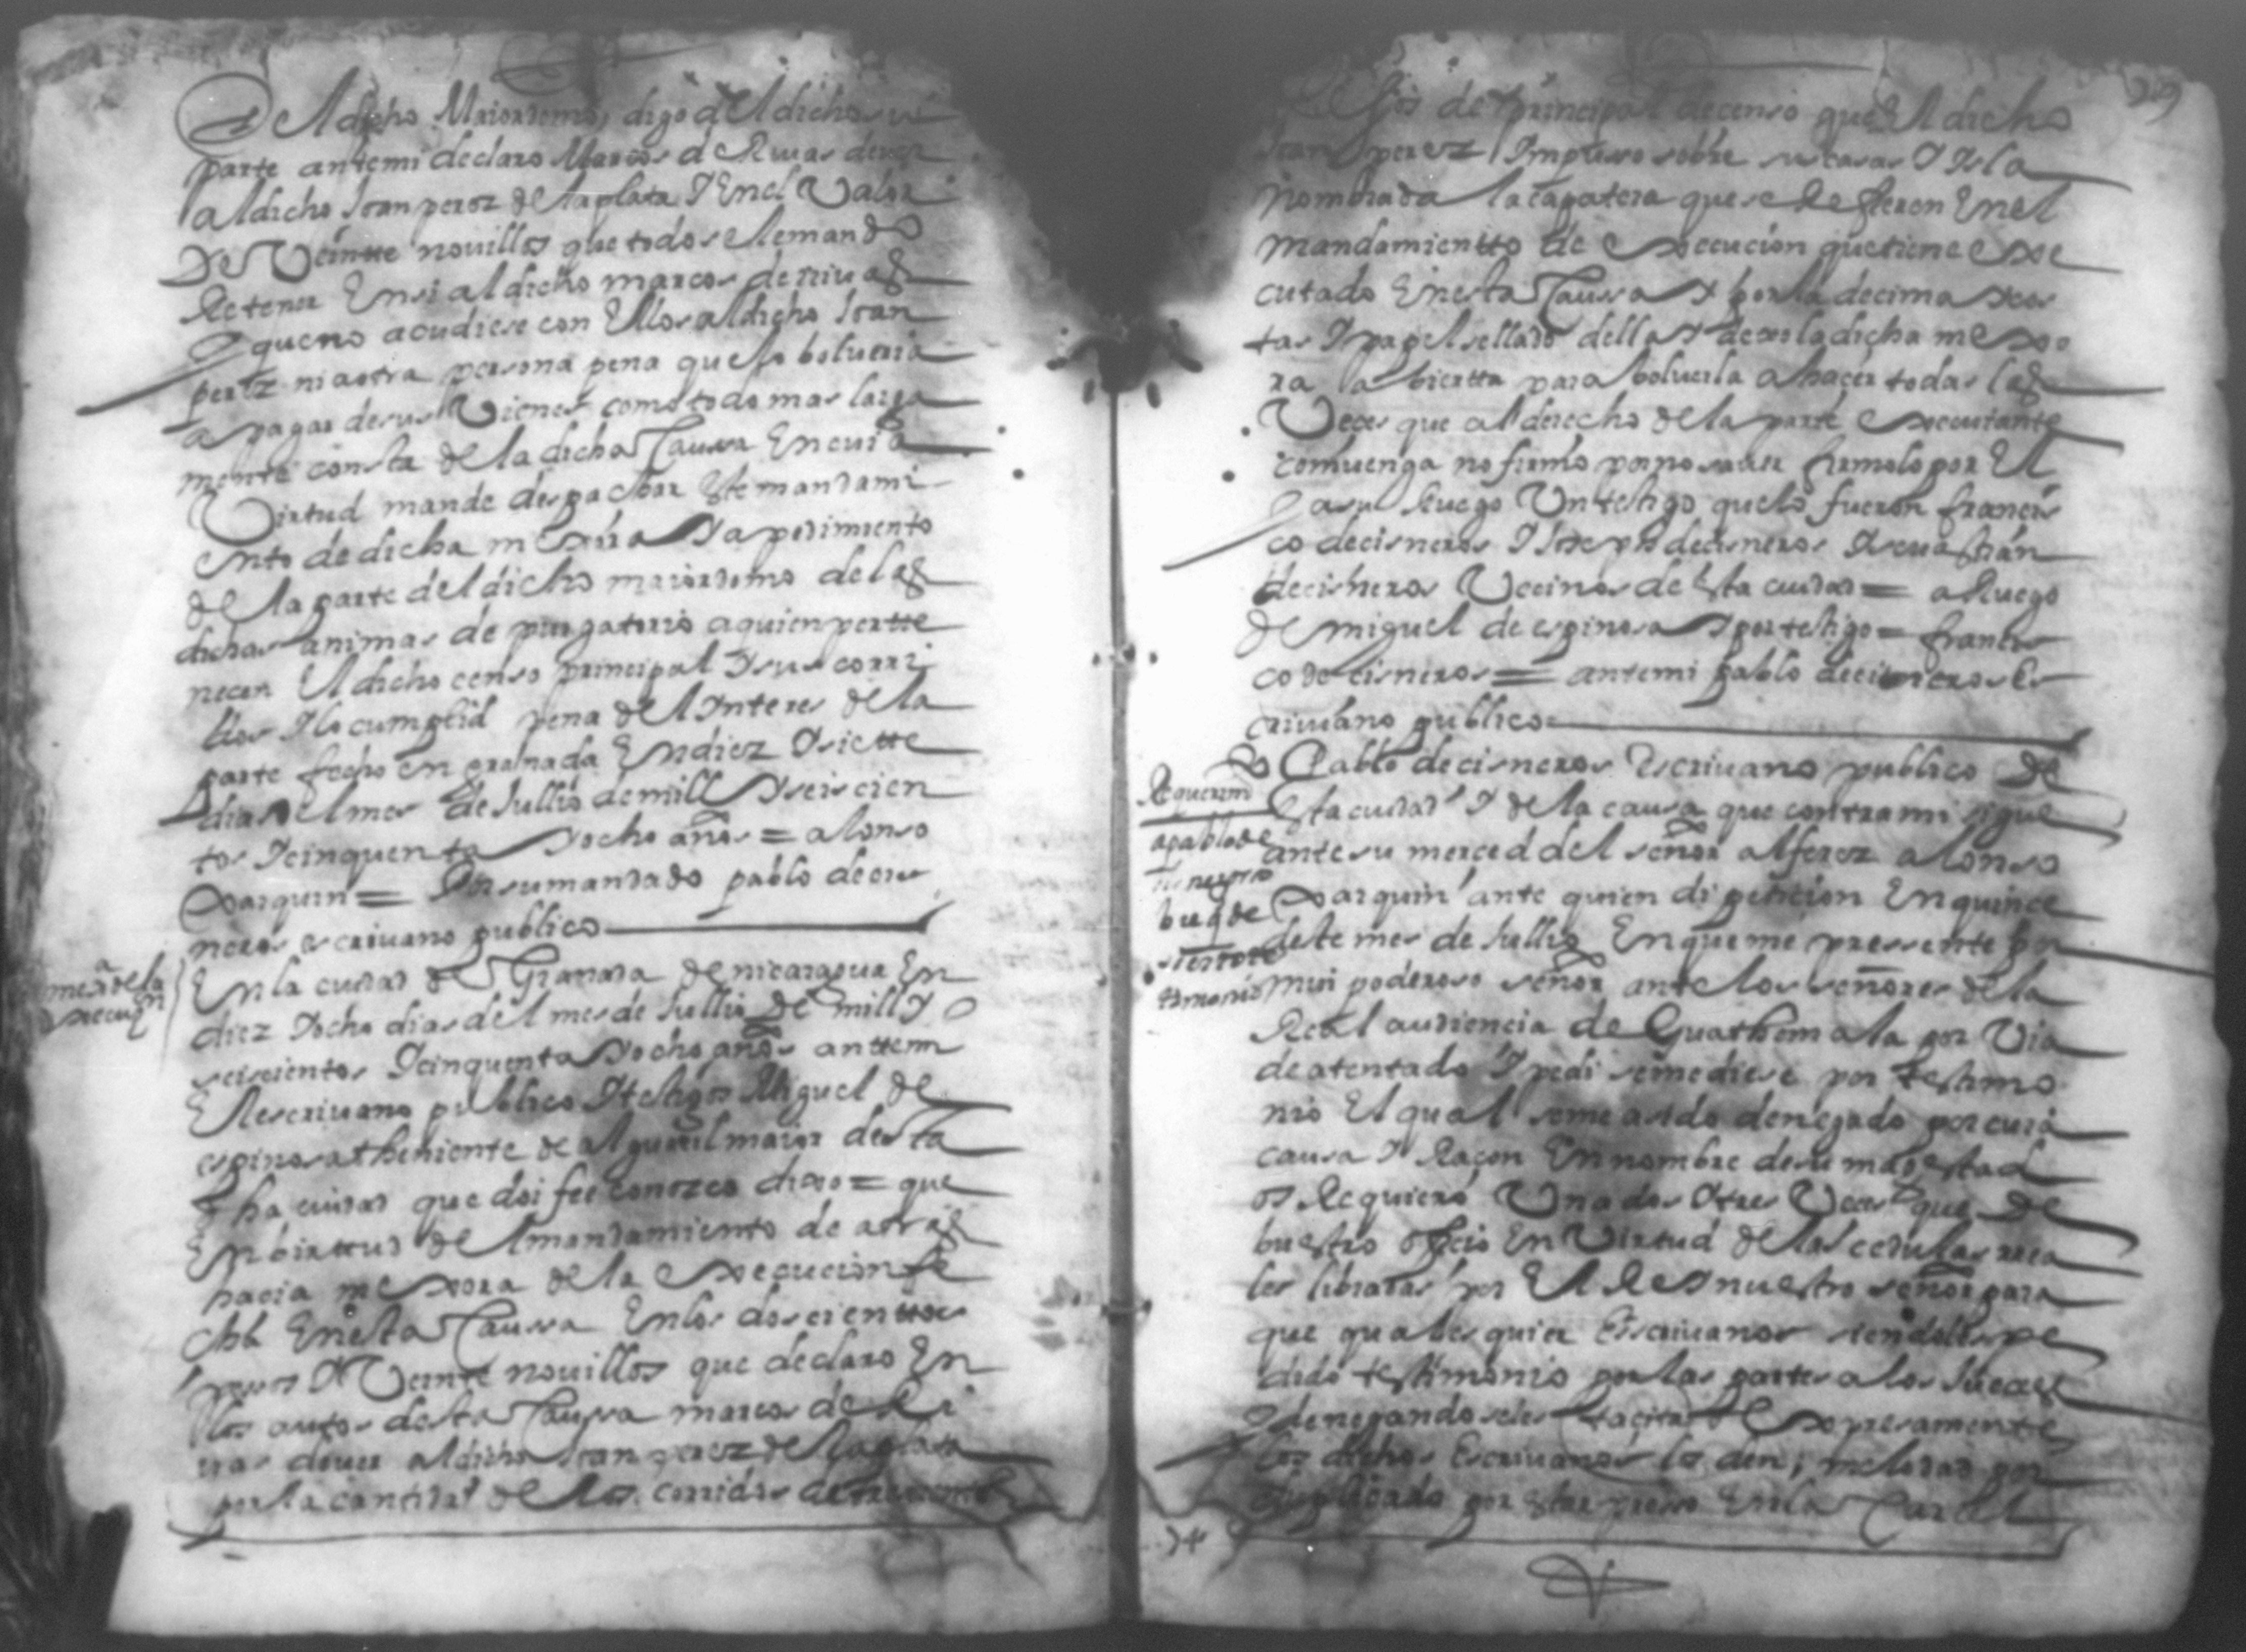 el dicho Maiordomo, digo del dicho su
parte antemi declaro Marcos de Riuas deuer
al dicho Joan perez de la plata I En el Valor
De Veintte nouillos que todo se le mando
Retener En si al dicho marcos de rriuas
I que no acudiese con Ellos al dicho Joan
perez ni a otra persona pena que lo bolueria
a pagar de sus Vienes como todo mas larga
mente consta de la dicha Caussa En cuia
Virtud mande despachar Este mandami
ento de dicha mexora I a pedimiento
de la parte del dicho maiordomo de las
dichas animas de purgatorio a quien pertte
necen El dicho censo principal I sus corri
dos I lo cumplid pena del Interes de la
parte fecho en granada En diez I siette
dias del mes de Jullio de mill I seiscien
tos I cinquenta I ocho años = alonso
Xarquin = Por su mandado pablo de cis
neros escriuano publico
mexᵃ de la
execuçⁿ
En la ciudad de Granada de nicaragua En
diez I ocho dias del mes de Jullio de mill I
seiscientos I cinquenta I ocho años anttemi
El escriuano publico I testigos Miguel de
espinosa theniente de alguaçil maior desta
dha ciudad que doi fee conozco dixo = que
En birttud del mandamiento de atras
hacia mexora de la execucion fe
cha En esta Caussa En los doscienttos
pesos I Veinte nouillos que declaro En
los autos desta Caussa marcos de Ri
uas deuer al dicho Joan perez de la plata
por la cantidad de los corridos
219
de principal de censo que El dicho
Joan perez Impusso sobre sus casas I Isla
nombrada la çapatera que se Refieren En el
mandamientto de execucion que tiene exe
cutado En esta Caussa I por la decima I cos
tas I papel sellado della I dexo la dicha mexo
ra abiertta para boluerla a hacer todas las
Veces que al derecho de la parte executante
combenga no firmo por no sauer firmolo por El
I a su Ruego Un testigo que lo fueron francis
co de cisneros I Joseph de cisneros I seuastian
de cisneros Vecinos de Esta ciudad = a Ruego
de miguel de espinosa I por testigo = francis
co de cisneros = antemi pablo de cisneros Es
criuano publico
Requerimᵗᵒ
a pablo de
cisneros
que de
testimonio
Pablo de cisneros Escriuano publico de
Esta ciudad I de la causa que contra mi sigue
ante su merced del señor alferez alonso
Xarquin ante quien di peticion En quince
deste mes de Jullio En que me pressente por
mui poderoso señor ante los señores de la
Real audiencia de Guathemala por Via
de atentado I pedi se me diese por testimo
nio El qual se me a sido denegado por cuia
causa I Raçon En nombre de su magestad
os Requiero Una dos I tres Veces que de
buestro oficio En Virtud de las cedulas rrea
les libradas por El Rei nuestro señor para
que quales quier Escriuanos siendoles pe
dido testimonio por las partes a los Jueces
I denegandoseles tacita I expresamente
los dichos Escriuanos los den,
duplicado por estar presso En la Carcel